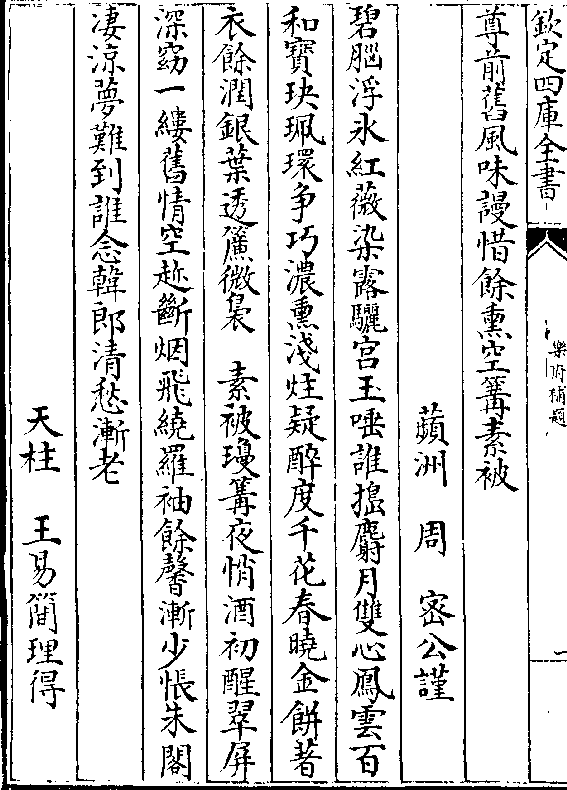 欽定四庫全書
樂府補題
一
尊前舊風味謾惜餘熏空篝素被
蘋洲　周　密公謹
碧腦浮氷紅薇染露驪宫玉唾誰擣麝月雙心鳳雲百
和寶玦珮環争巧濃熏淺炷疑醉度千花春曉金餅著
衣餘潤銀葉透簾微裊　素被瓊篝夜悄酒初醒翠屏
深窈一縷舊情空趂斷烟飛繞羅袖餘馨漸少悵朱閣
凄涼夢難到誰念韓郎清愁漸老
天柱　王易簡理得